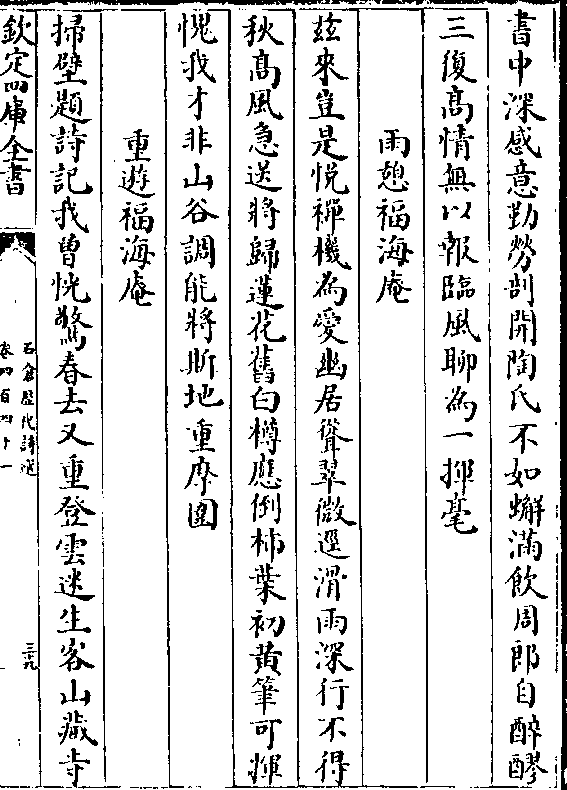 書中深感意勤勞剖開陶氏不如蠏滿飲周郎自醉醪
三復髙情無以報臨風聊為一揮毫
雨憩福海庵
玆來豈是悦禪機為愛幽居聳翠微逕滑雨深行不得
秋髙風急送將歸蓮花舊白樽應倒柿葉初黄筆可揮
愧我才非山谷調能將斯地重摩圍
重遊福海庵
掃壁題詩記我曽恍驚春去又重登雲迷生客山藏寺
欽定四庫全書
石倉歴代詩選
卷四百四十一
三十九